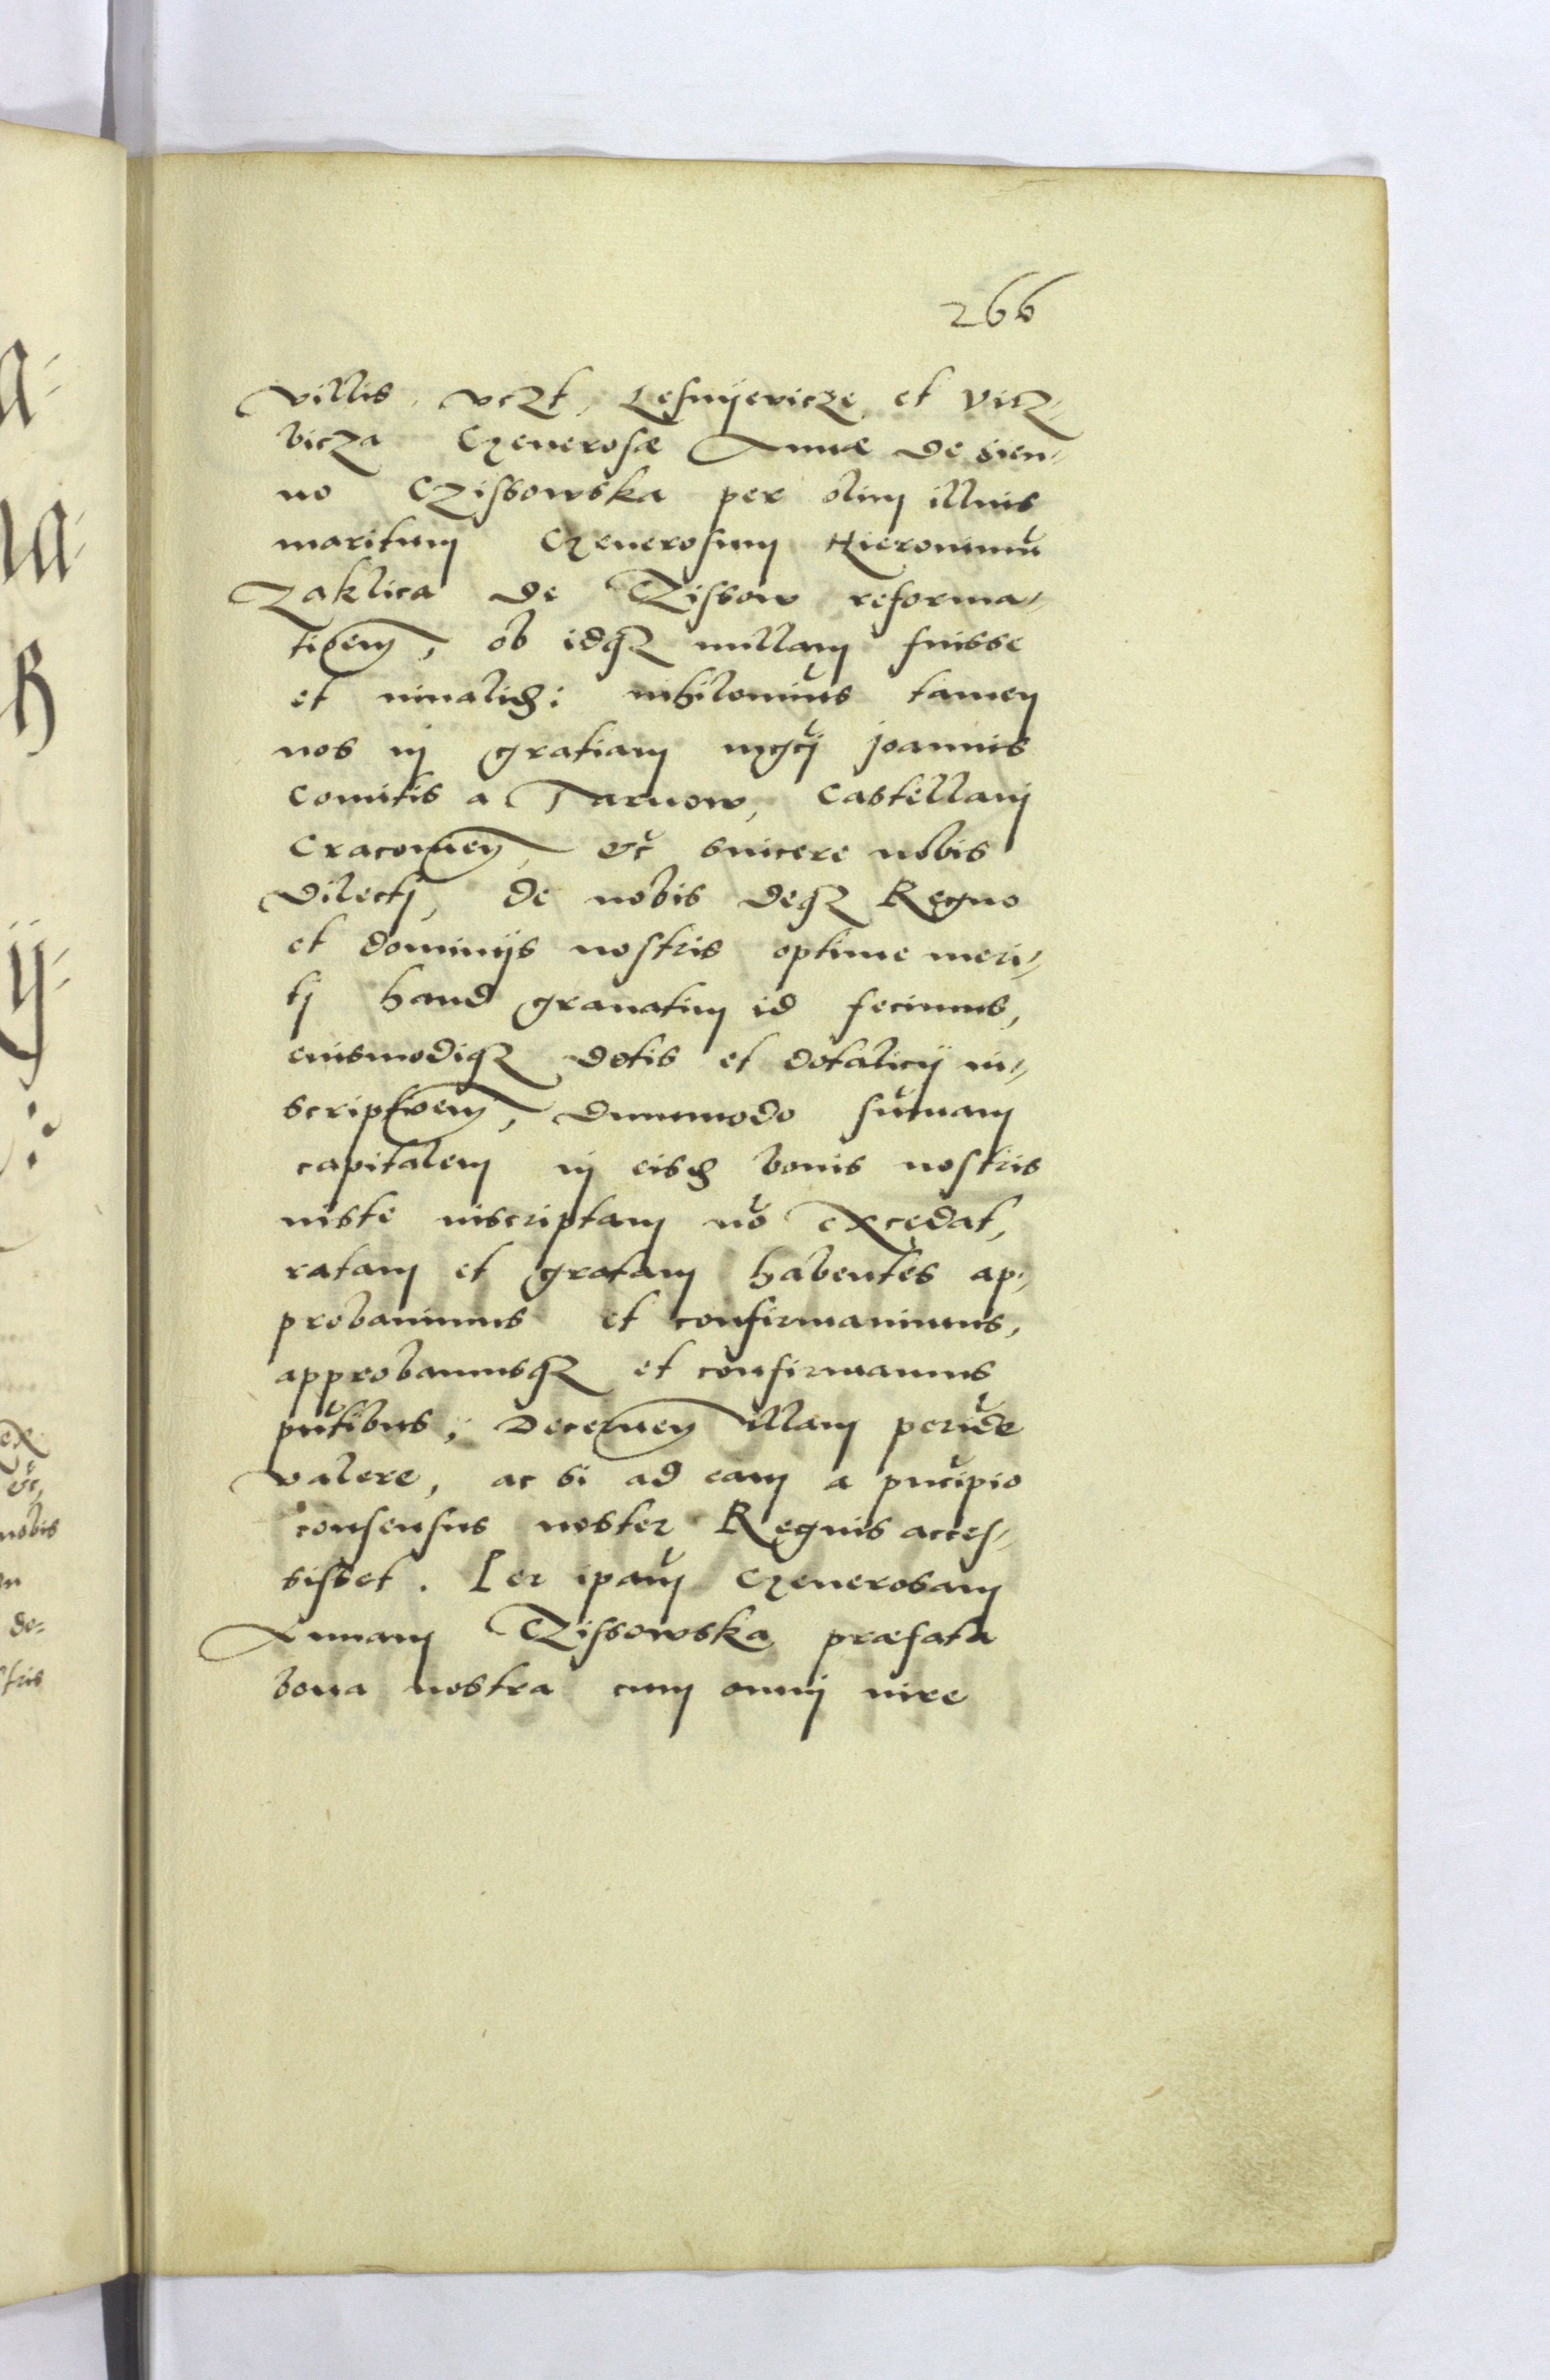 266
villis, vczt, Lesnijevicze et Vicz-
bicza Generosæ Annæ de Sien-
no Czissowska per olim illius
maritum Generosum Hieronimũ
Zaklica de Czissow reforma-
tioem, ob idq3 nullam fuisse
et inualid: nihilominus tamen
nos in gratiam mgci Joannis
Comitis a Tarnow, Castellani
Cracouien, &c sincere nobis
dilecti, de nobis deq3 Regno
et dominijs nostris optime meri-
ti haud grauatim id fecimus,
eiusmodiq3 dotis et dotalicij in-
scriptioem, dummodo sũmam
capitalem in eisd bonis nostris
iuste inscriptam nõ excedat,
ratam et gratam habentes ap-
probauimus et confirmauimus,
approbamusq3 et confirmamus
pñtibus, Decernen illam perĩde
valere, ac si ad eam a pricipio
consensus noster Regius acces-
sisset. Ler ipam Generosam
Annam Czissowska præfata
bona nostra cum omni iure
ÿ-
ex
&c,
nobis
de=